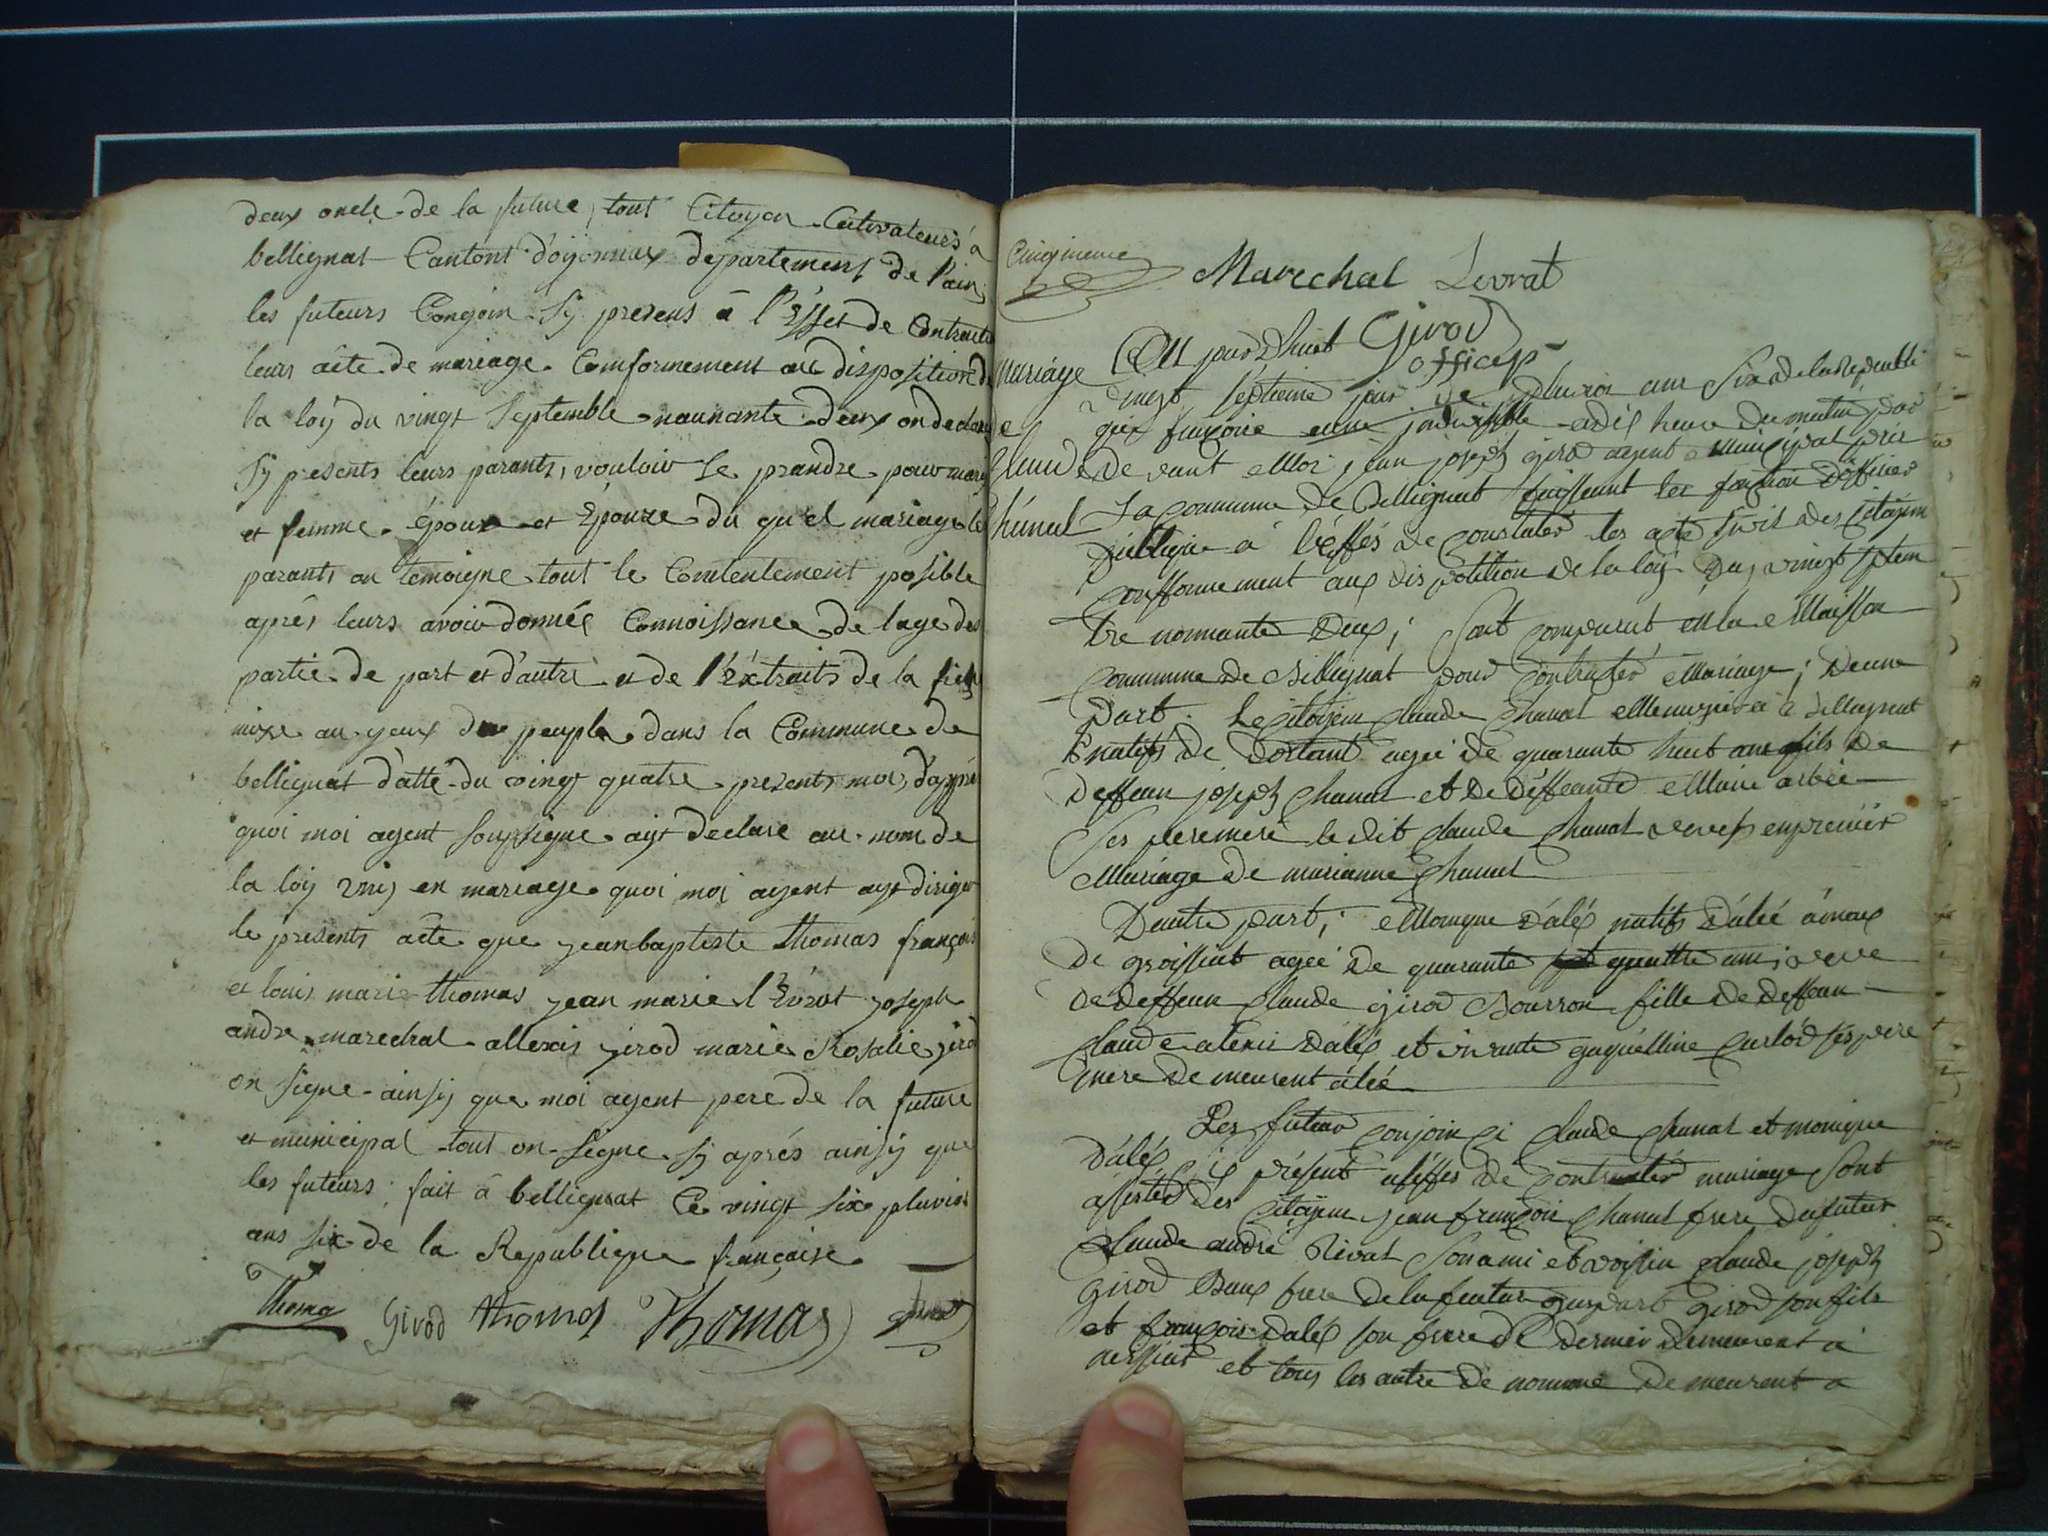 deux oncle de la future, tout Citoyen Cultivateurs à
bellignat Cantont d'oyonnax departement de l'ain
les futeurs Conjoin sy presens à l'Effet de Contracter
leurs acte de mariage Comformement au disposition de
la loÿ du vingt septembre naunante deux on declaré
sy presents leurs parants, vouloir se prandre pour mary
et femme époux et Epouze du quel mariage les
parants on temoigne tout le Contentement posible
aprés leurs avoir donnée Connoissance de lage des
partie de part et d'autre et de l'Extraits de la fiche
mise au yeux du peuple dans la Commune de
bellignat d'atté du vingt quatre presents moi, d'apprè
quoi moi agent soussigne ayt declare au nom de
la loÿ unis en mariage quoi moi agent ayt diriger
le presents acte que jean baptiste thomas françois
et louis marie thomas jean marie l'Evrat joseph
andre marechal allexis girod marie Rosalie girod
on signe ainsy que moi agent pere de la future
et municipal tout on signe sy aprés ainsÿ que
les futeurs, fait à bellignat Ce vingt six pluvios
ans six de la Republique francaise
Thoma Girod thomas Thomas
Cinqieme
Marechal Levrat
Girod
officep
mariage
de
Claude
Chanal
Au jourd'huit
vingt septieme jour de pluvios ans Six de la Republi
que françoise enne jndivisible a dix heure du matin par
de vant Moi jean joseph girod agent municipal pour
La commune de Bellignat faissant les fontion d'offisier
publique à l'effés de constater les acte sivil des Citoyen
conffornement aux dispotition de la loÿ Du vingt septem
bre nonnante deux; Sont comparut en la Maisson
commune de Bellignat pour contracter Mariage; Deune
part. Le citoÿen claude Chanal Menuzier à Bellignat
natifs de Dortant agée de quarante huit ans fils de
deffeau joseph Chanal et de deffeante Marie arbée
Ses pere mere le dit Claude Chanal veuefs en premier
Mariage de marianne Chanal
Dautre part; Monique dalés natifs dalée ameaux
de groissiat agée de quarante quattre ans; veve
de deffeau Claude girod Bourron fille de deffeau
Claude alexis dalés et vivante jaquelline Carlod ses pere
mere de meurent alée
Les futeur conjoin ci Claude Chanal et monique
dalés ci présent aléffes de contracter mariage Sont
assistés des Citoÿen jean françois Chanal frere du futur
Claude andré Nivat Son ami et voissin claude joseph
Girod Baux frere de la future gaspard girod son fils
et françois dalés son frere de dernier demeurent à
et tous les autre de nomme de meurent a